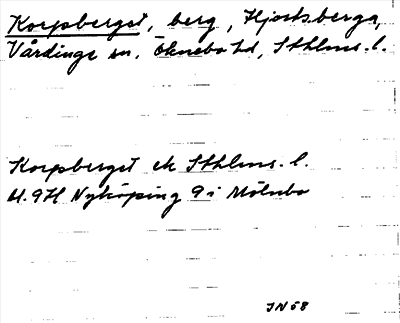 Korpberget, berg, Hjortsberga,
Vårdinge sn, Öknebo hd, Sthlms. l.
Korpberget ek Sthlms. l.
H. 9H Nyköping 9 i Mölnbo
JN 58